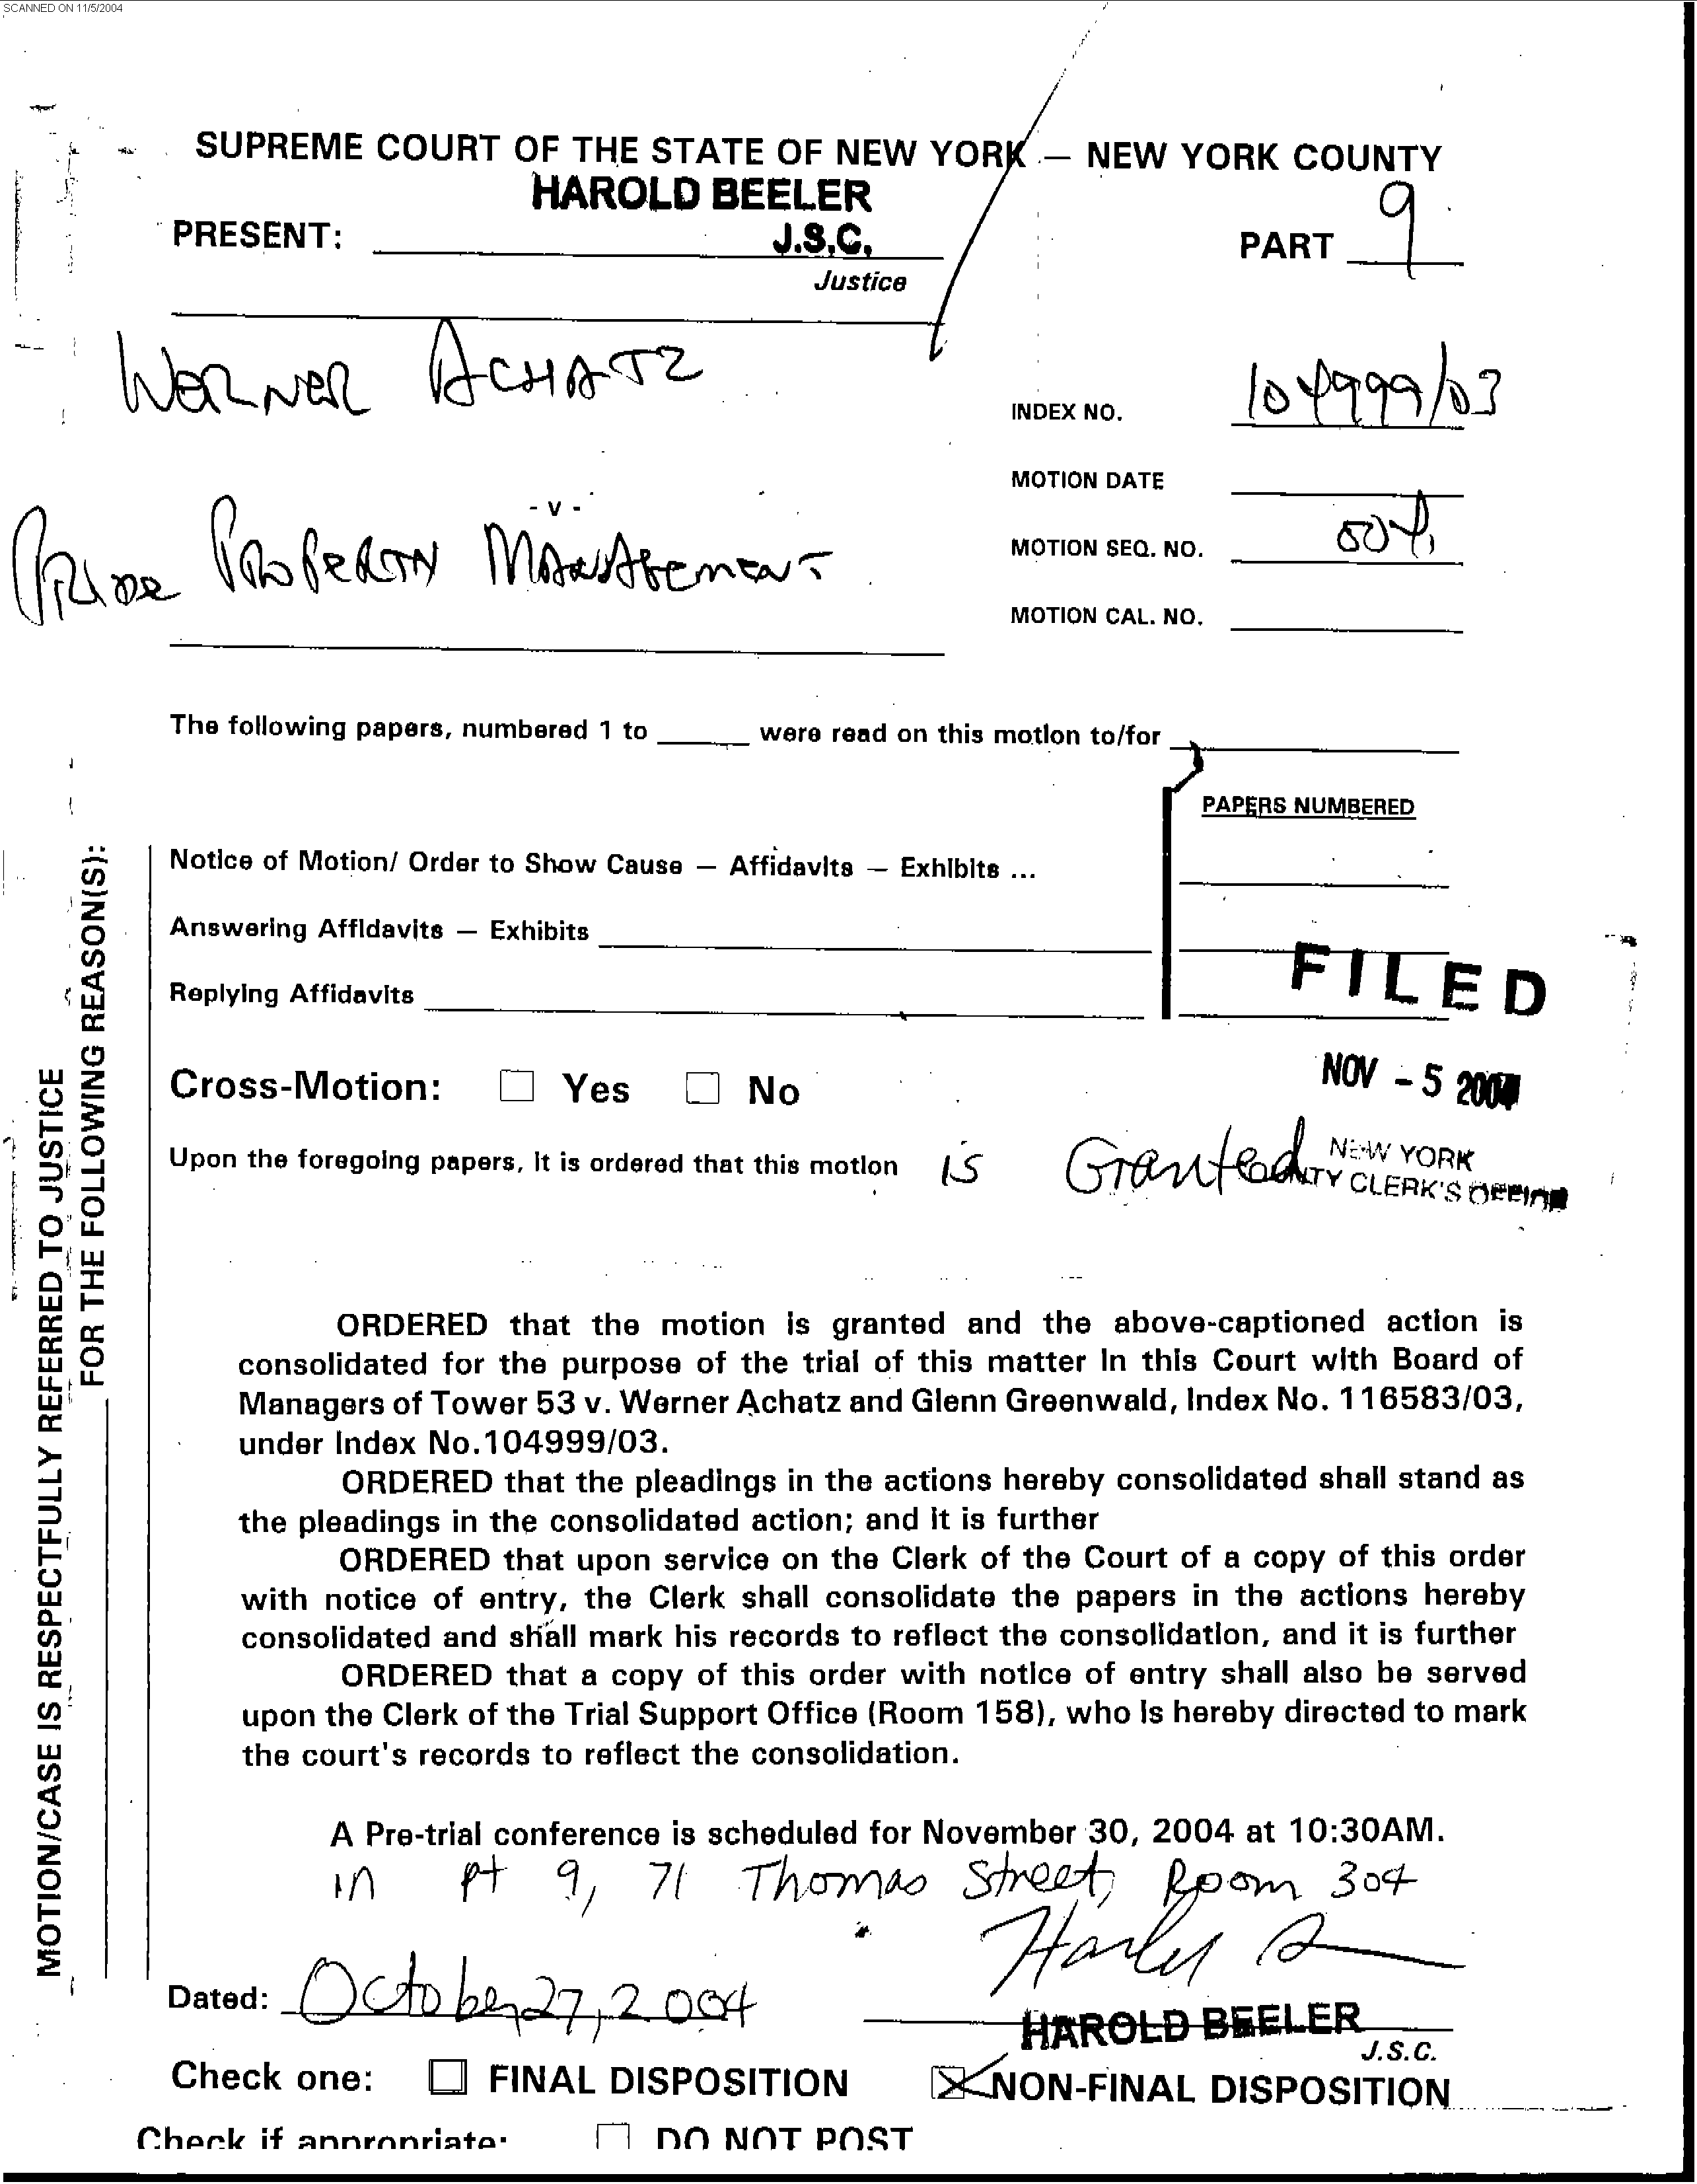 SCANNED ON 11/5/2004
SUPREME COURT OF THE STATE OF NEW YORK — NEW YORK COUNTY
HAROLD BEELER
PRESENT: J.S.C.
Justice
PART 9
WERNER ACHATZ
INDEX NO. 104999/03
MOTION DATE
- v -
PRIDE PROPERTY MANAGEMENT
MOTION SEQ. NO. 004
MOTION CAL. NO.
The following papers, numbered 1 to ____ were read on this motion to/for
PAPERS NUMBERED
Notice of Motion/ Order to Show Cause — Affidavits — Exhibits ...
Answering Affidavits — Exhibits
Replying Affidavits
FILED
Cross-Motion: ☐ Yes ☐ No
NOV - 5 2004
Upon the foregoing papers, it is ordered that this motion is Granted
NEW YORK
CLERK'S OFFICE
ORDERED that the motion is granted and the above-captioned action is
consolidated for the purpose of the trial of this matter in this Court with Board of
Managers of Tower 53 v. Werner Achatz and Glenn Greenwald, Index No. 116583/03,
under Index No.104999/03.
ORDERED that the pleadings in the actions hereby consolidated shall stand as
the pleadings in the consolidated action; and it is further
ORDERED that upon service on the Clerk of the Court of a copy of this order
with notice of entry, the Clerk shall consolidate the papers in the actions hereby
consolidated and shall mark his records to reflect the consolidation, and it is further
ORDERED that a copy of this order with notice of entry shall also be served
upon the Clerk of the Trial Support Office (Room 158), who is hereby directed to mark
the court's records to reflect the consolidation.
A Pre-trial conference is scheduled for November 30, 2004 at 10:30AM.
in pt 9, 71 Thomas Street, Room 304
Dated: October 27, 2004
HAROLD BEELER
J.S.C.
Check one: ☐ FINAL DISPOSITION ☒ NON-FINAL DISPOSITION
Check if appropriate: ☐ DO NOT POST
MOTION/CASE IS RESPECTFULLY REFERRED TO JUSTICE
FOR THE FOLLOWING REASON(S):